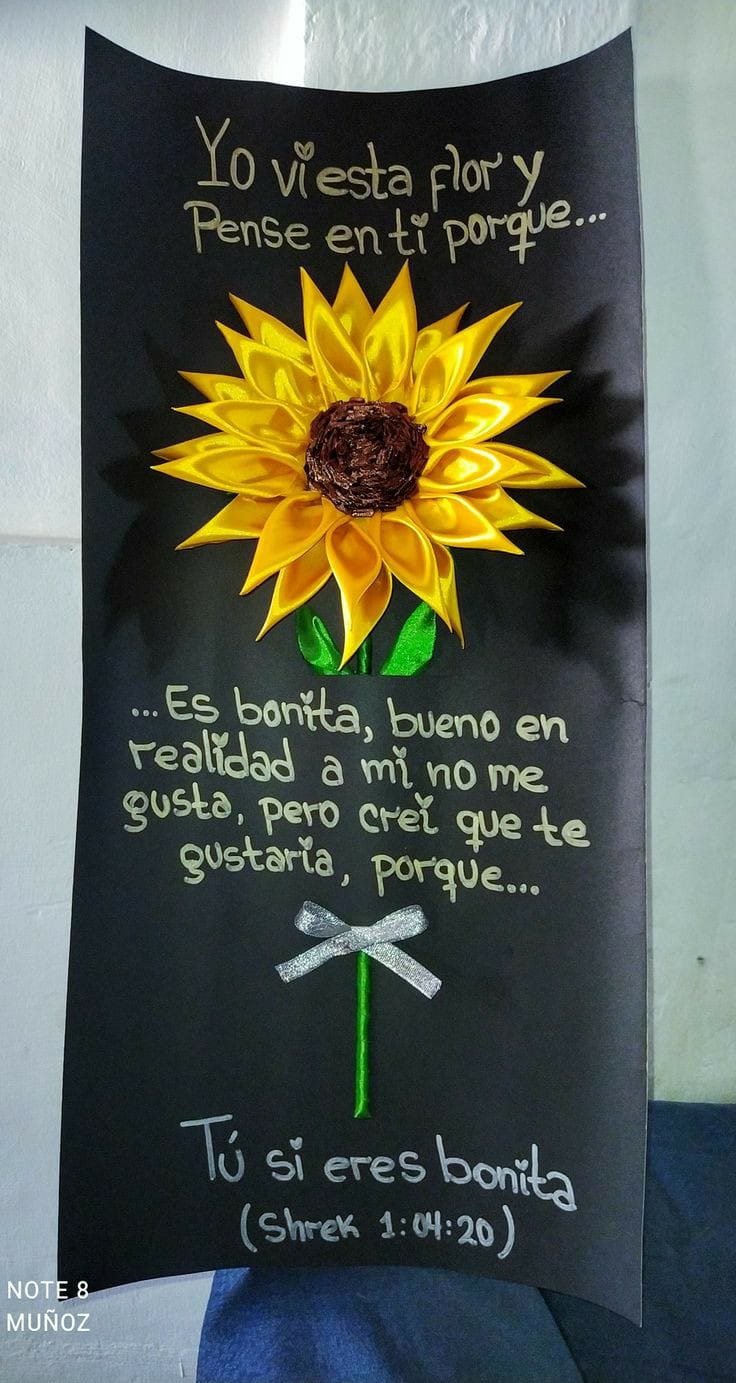 Yo vi esta flor y
Pense en ti porque...
...Es bonita, bueno en
realidad a mi no me
gusta, pero crei que te
gustaria, porque...
Tú si eres bonita
(Shrek 1:04:20)
NOTE 8
MUÑOZ